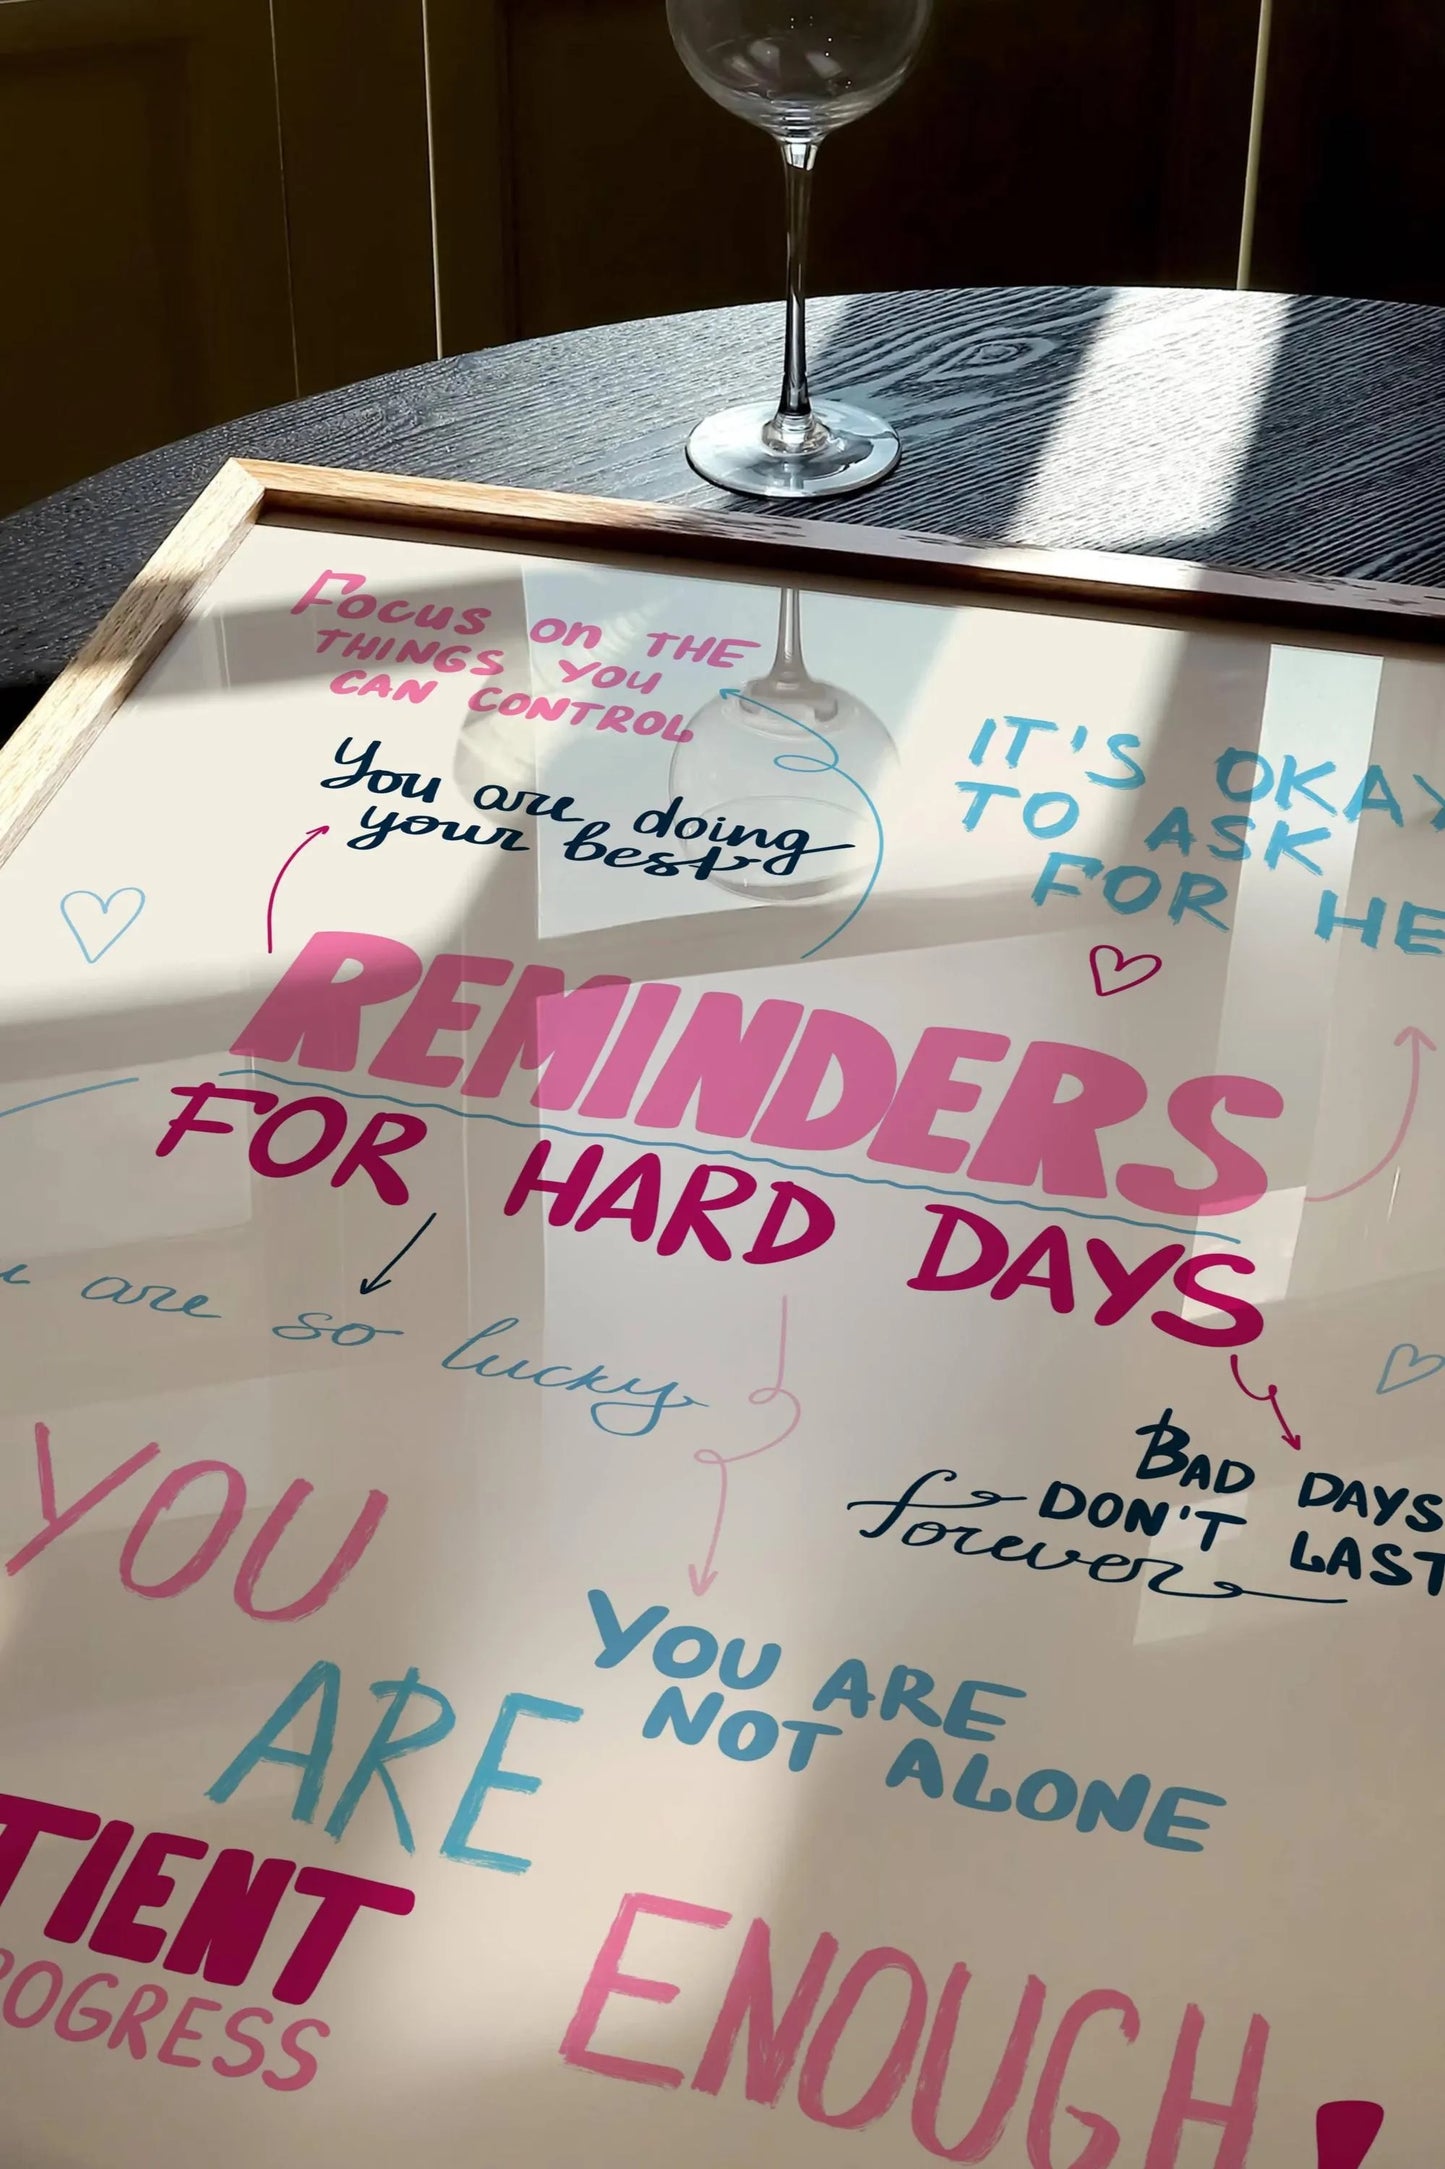 Focus on THE
THINGS YOU
CAN CONTROL
You are doing
your best
IT'S OKAY
TO ASK
FOR HE
REMINDERS
FOR HARD DAYS
are so lucky
BAD DAYS
DON'T LAST
forever
YOU
ARE
ENOUGH!
YOU ARE
NOT ALONE
TIENT
ROGRESS